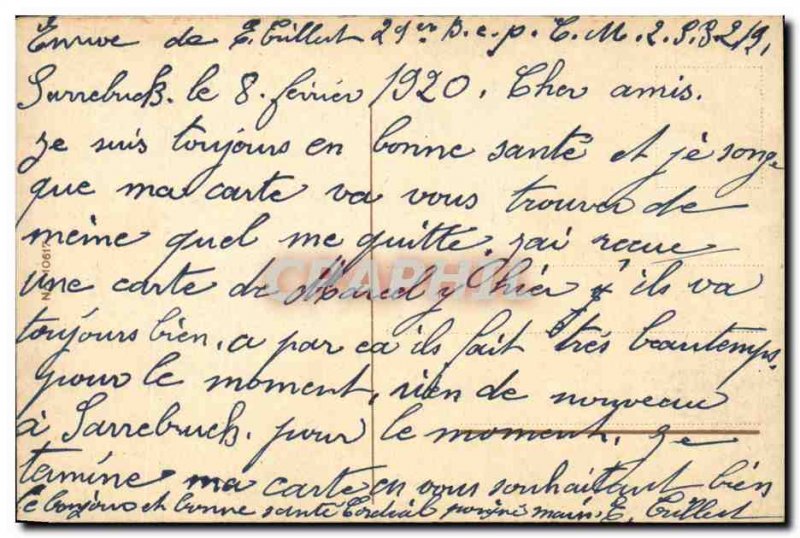 Envive de E. Trillert 29er D.e.p. C. M. 2. S. P. 219.
Sarrebuck. le 8. février 1920. Cher amis.
Je suis toujours en bonne santé et jè songe
que ma carte va vous trouver de
même quel me quitté, jai recue
une carte de hièr ils va
toujours bien, a par ca ils fait très beautemps.
pour le moment, rien de nouveau
à Sarrebruck. pour le moment. Je
termine ma carte en vous souhaitant bièn
le bonjour et bonne santé Cordial poigné main. E. Trillert
CPAPHIL
10617